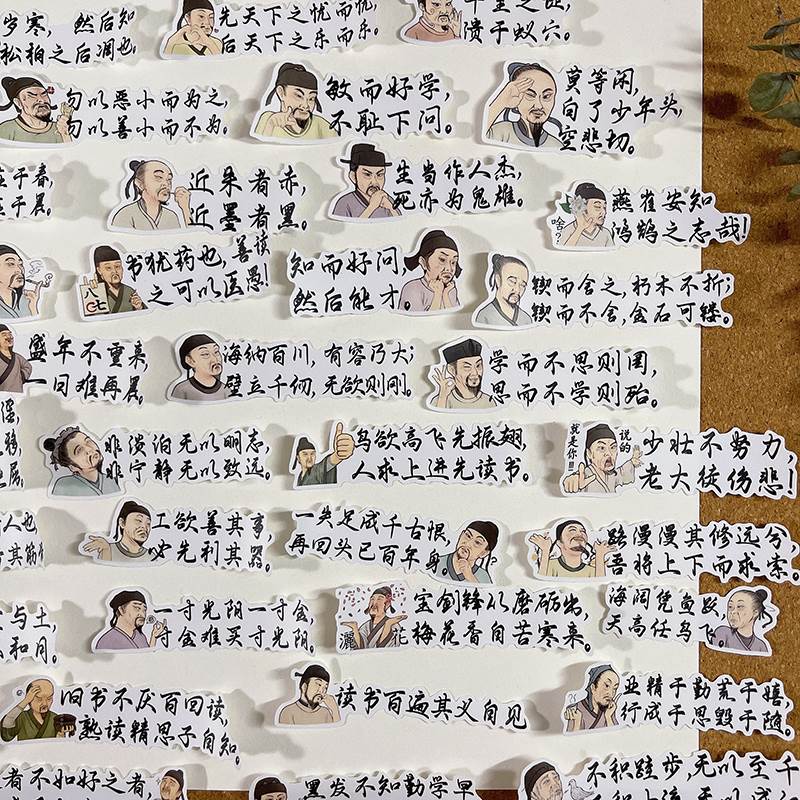 岁寒，然后知
松柏之后凋也
先天下之忧而忧，
后天下之乐而乐。
千里之堤，
溃于蚁穴。
勿以恶小而为之，
勿以善小而不为。
敏而好学，
不耻下问。
莫等闲，
白了少年头，
空悲切。
在于春，
在于晨。
近朱者赤，
近墨者黑。
生当作人杰，
死亦为鬼雄。
啥？
燕雀安知
鸿鹄之志哉！
八
七
书犹药也，善读
之可以医愚！
知而好问，
然后能才。
锲而舍之，朽木不折；
锲而不舍，金石可镂。
盛年不重来，
一日难再晨。
海纳百川，有容乃大；
壁立千仞，无欲则刚。
学而不思则罔，
思而不学则殆。
非淡泊无以明志，
非宁静无以致远。
鸟欲高飞先振翅，
人求上进先读书。
就是你!!!
说的
少壮不努力，
老大徒伤悲！
人也，
其筋
工欲善其事，
必先利其器。
一失足成千古恨，
再回头已百年身。
路漫漫其修远兮，
吾将上下而求索。
与土，
和月。
一寸光阴一寸金，
寸金难买寸光阴。
灑
花
宝剑锋从磨砺出，
梅花香自苦寒来。
海阔凭鱼跃，
天高任鸟飞。
旧书不厌百回读，
熟读精思子自知。
读书百遍其义自见
业精于勤荒于嬉，
行成于思毁于随。
者不如好之者，
黑发不知勤学早
不积跬步，无以至千